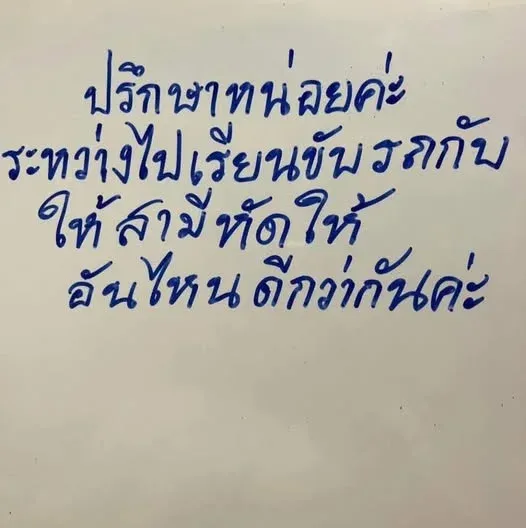 ปรึกษาหน่อยค่ะ
ระหว่างไปเรียนขับรถกับ
ให้สามีหัดให้
อันไหนดีกว่ากันค่ะ